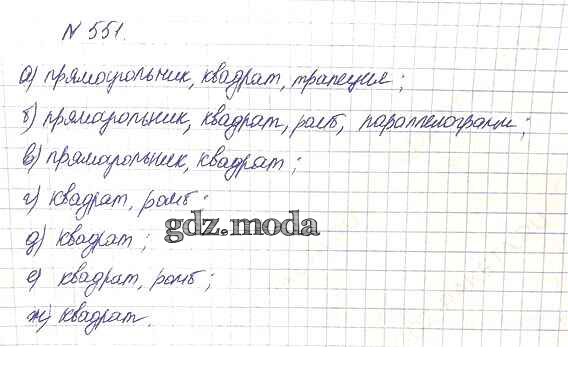 № 551.
а) прямоугольник, квадрат, трапеция;
б) прямоугольник, квадрат, ромб, параллелограмм;
в) прямоугольник, квадрат;
г) квадрат, ромб;
gdz.moda
д) квадрат;
е) квадрат, ромб;
ж) квадрат.